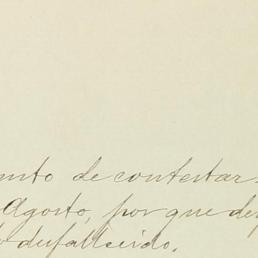 de contestar
Agosto, por que
desfallecido.